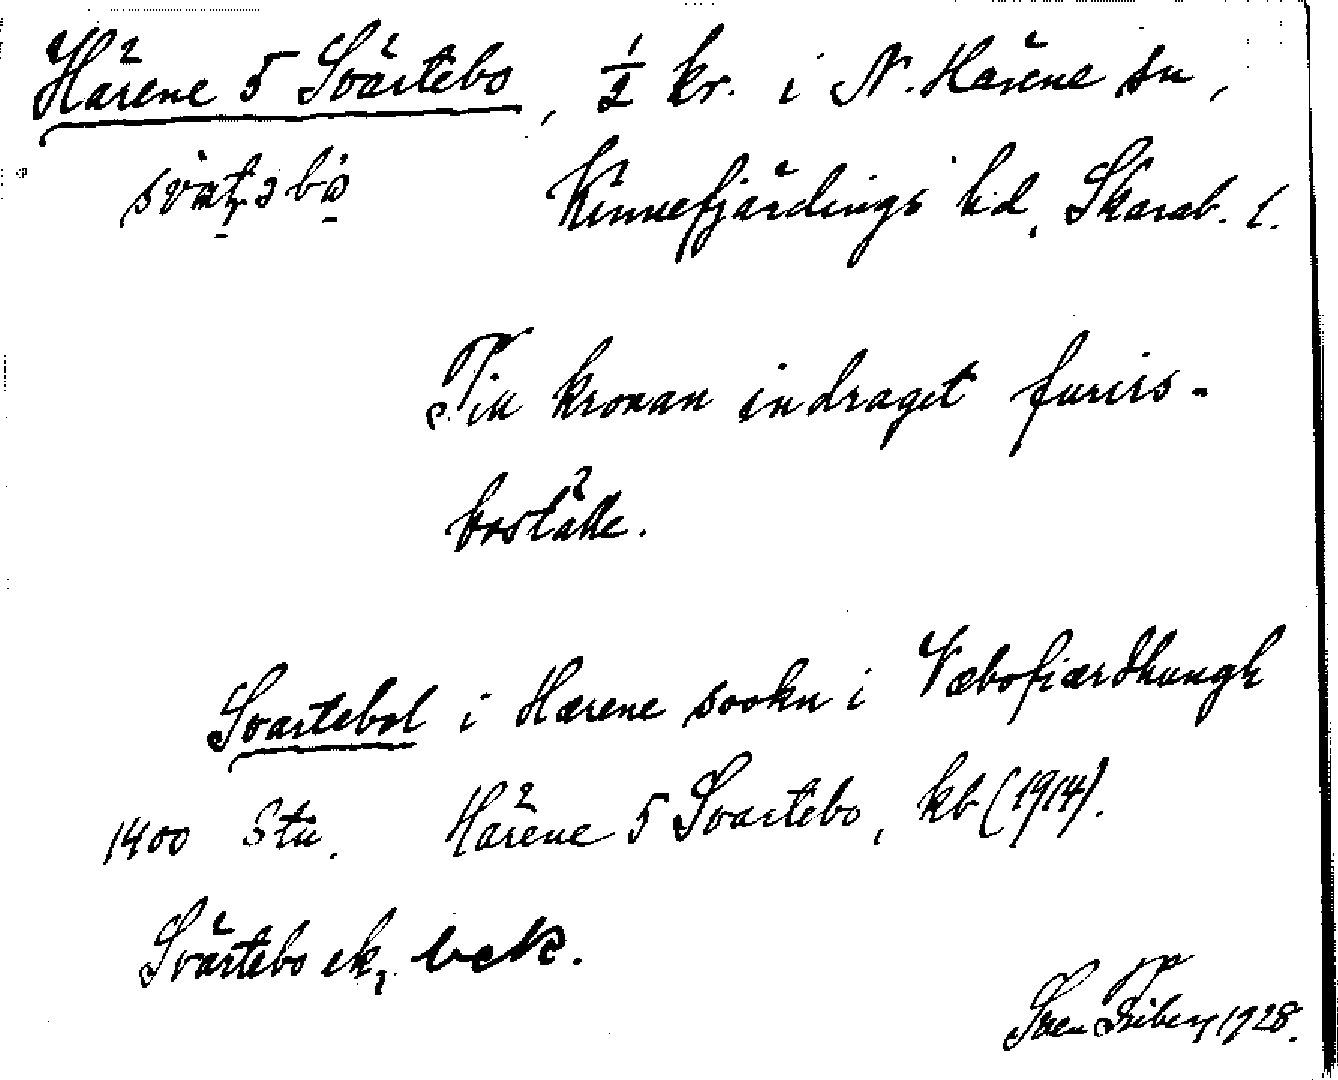 Härene 5 Svärtebo, ½ kr. i N. Härene sn,
Kinnefjärdings hd, Skarab. l.
Till kronan indraget furirs-
boställe.
Svartebol i Hærene sookn i Væbofiærdhungh
1400 Stu. Härene 5 Svartebo, kb (1914).
Svärtebo ek, bek.
Sven Friberg 1928.